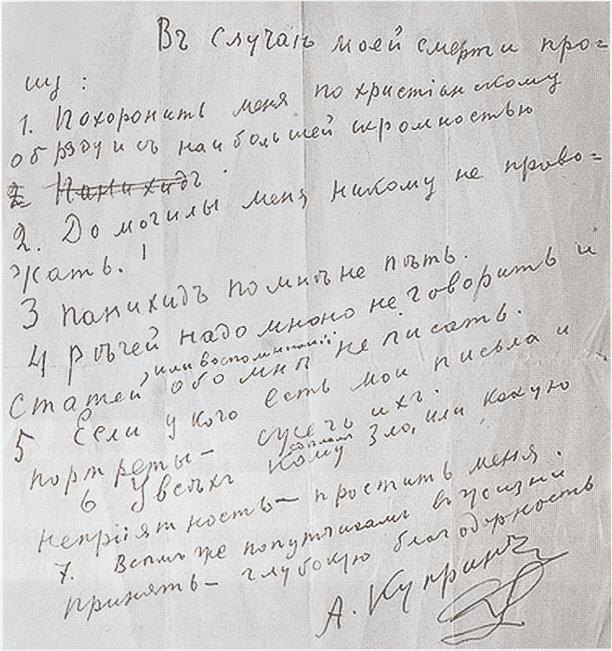 Въ случаѣ моей смерти про=
шу:
1. Похоронить меня по христіанскому
обряду и съ наибольшей скромностью
2 Панихидъ.
2. До могилы меня никому не прово=
жать.
3 Панихидъ по мнѣ не пѣть.
4 Рѣчей надо мною не говорить и
статей, или воспоминаній обо мнѣ не писать.
5 Если у кого есть мои письма и
портреты — сжечь ихъ.
6 У всѣхъ кому сдѣлалъ зло, или какую
непріятность — простить меня.
7. Всѣмъ же попутчикамъ въ жизни
принять — глубокую благодарность
А. Купринъ